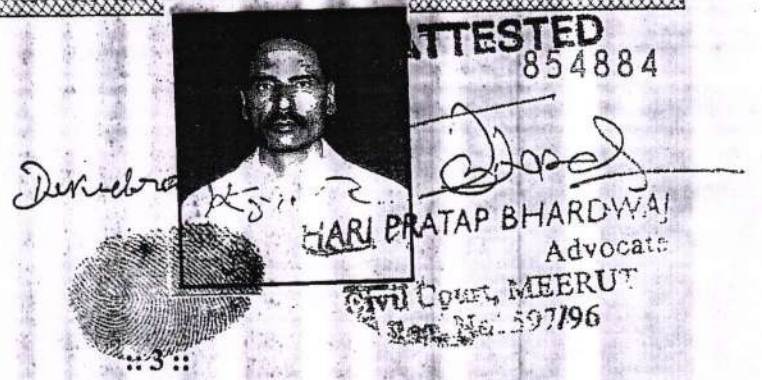 ATTESTED
854884
HARI PRATAP BHARDWAJ
Advocate
Civil Court, MEERUT
Reg. No. 597/96
:: 3 ::